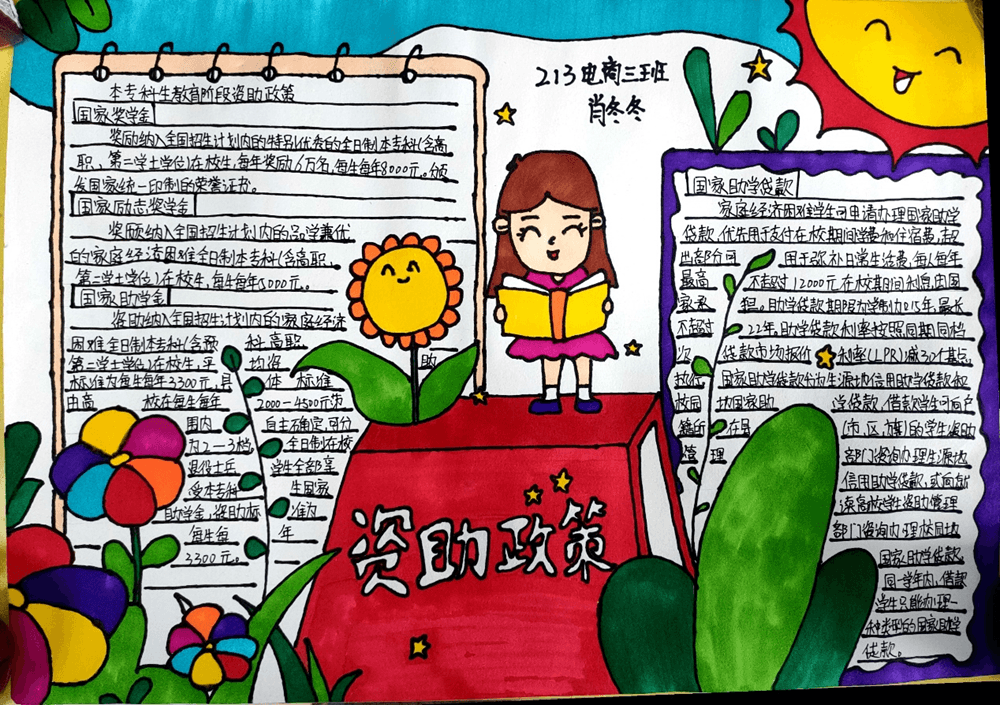 213电商三班
肖冬冬
本专科生教育阶段资助政策
国家奖学金
奖励纳入全国招生计划内的特别优秀的全日制本专科(含高
职、第二学士学位)在校生,每年奖励6万名,每生每年8000元。颁
发国家统一印制的荣誉证书。
国家励志奖学金
奖励纳入全国招生计划内的品学兼优
的家庭经济困难全日制本专科(含高职、
第二学士学位)在校生,每生每年5000元。
国家助学金
资助纳入全国招生计划内的家庭经济
困难全日制本专科(含预科、高职、
第二学士学位)在校生,平均资助
标准为每生每年3300元,具体标准
由高校在每生每年2000-4500元
范围内自主确定,可分
为2-3档。全日制在校
退役士兵学生全部享
受本专科生国家
助学金,资助标准为
每生每年
3300元。
资助政策
国家助学贷款
家庭经济困难学生可申请办理国家助学
贷款,优先用于支付在校期间学费和住宿费,超
出部分可用于弥补日常生活费,每人每年
最高不超过12000元,在校期间利息由国
家承担。助学贷款期限为学制加15年,最长
不超过22年。助学贷款利率按照同期同档
次贷款市场报价利率(LPR)减30个基点
执行。国家助学贷款分为生源地信用助学贷款和
校园地国家助学贷款,借款学生可向户
籍所在县(市、区、旗)的学生资助
管理部门咨询办理生源地
信用助学贷款,或向就
读高校学生资助管理
部门咨询办理校园地
国家助学贷款。
同一学年内,借款
学生只能办理一
种类型的国家助学
贷款。